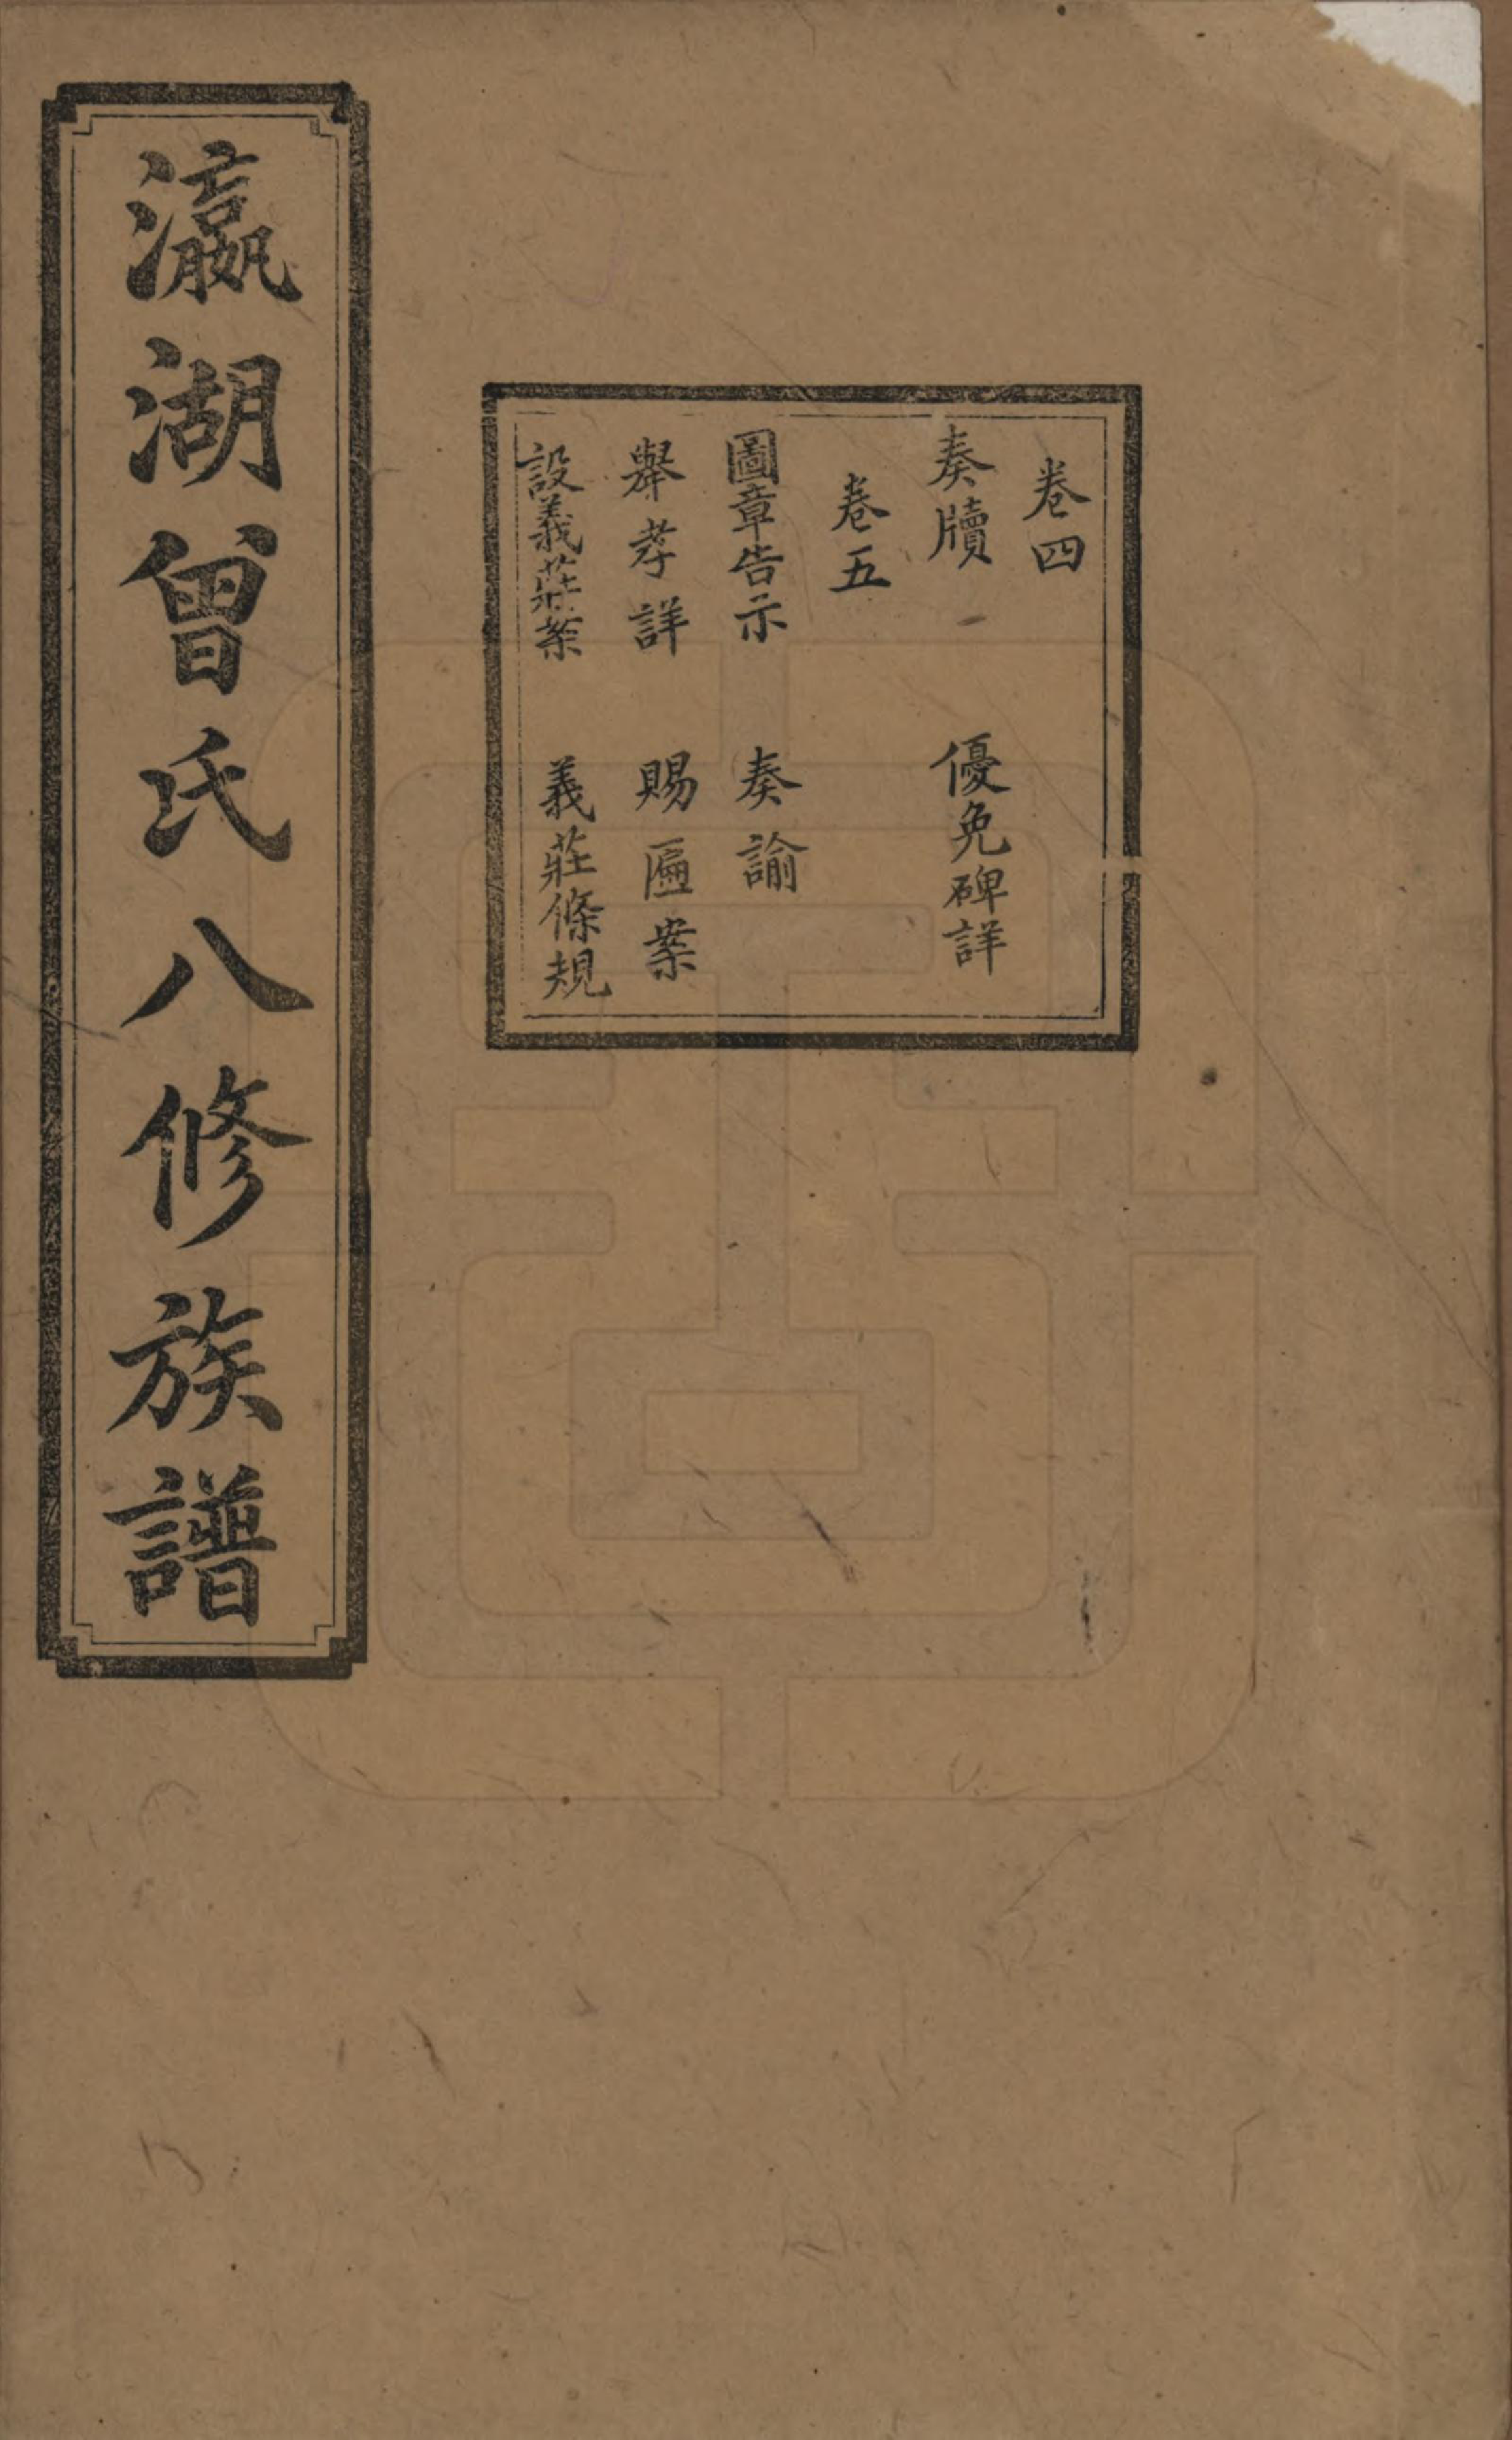 卷四
奏牘　優免碑詳
卷五
圖章告示　奏諭
舉孝詳　賜匾案
設義莊案　義莊條規
瀛湖曾氏八修族譜